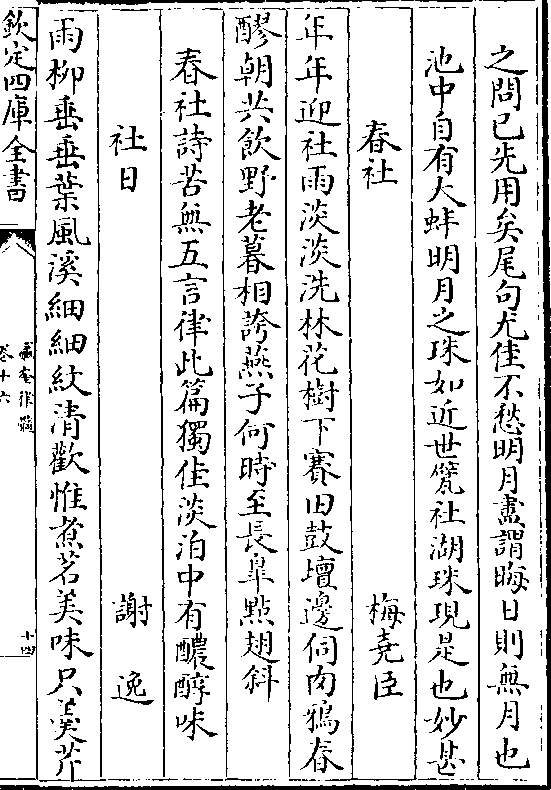 之問已先用矣尾句尤佳不愁明月盡謂晦日則無月也
池中自有大蚌明月之珠如近世甓社湖珠現是也妙甚
春社 梅堯臣
年年迎社雨淡淡洗林花樹下賽田鼓壇邊伺肉鴉春
醪朝共飲野老暮相誇燕子何時至長臯點翅斜
春社詩苦無五言律此篇獨佳淡泊中有醲醇味
社日 謝逸
雨柳垂垂葉風溪細細紋清歡惟煮茗美味只羮芹
欽定四庫全書
瀛奎律髓
卷十六
十四